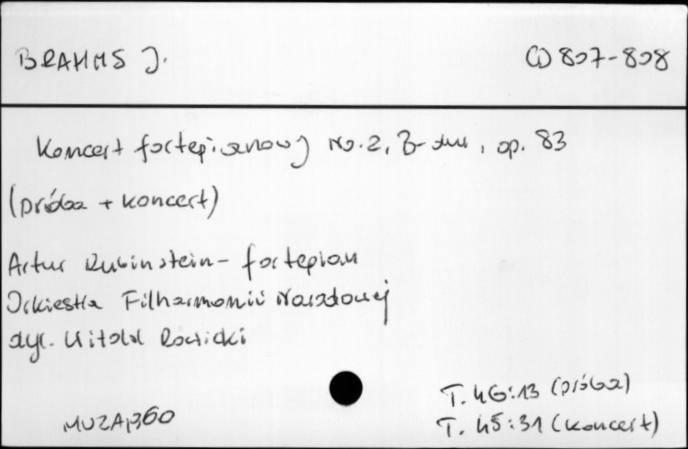 BRAHMS J.
CD 807-808
Koncert fortepianowy No. 2, B-dur, op. 83
(próba + koncert)
Artur Rubinstein - fortepian
Orkiestra Filharmonii Narodowej
dyr. Witold Rowicki
T. 46:13 (próba)
MUZA, 360
T. 45:31 (koncert)